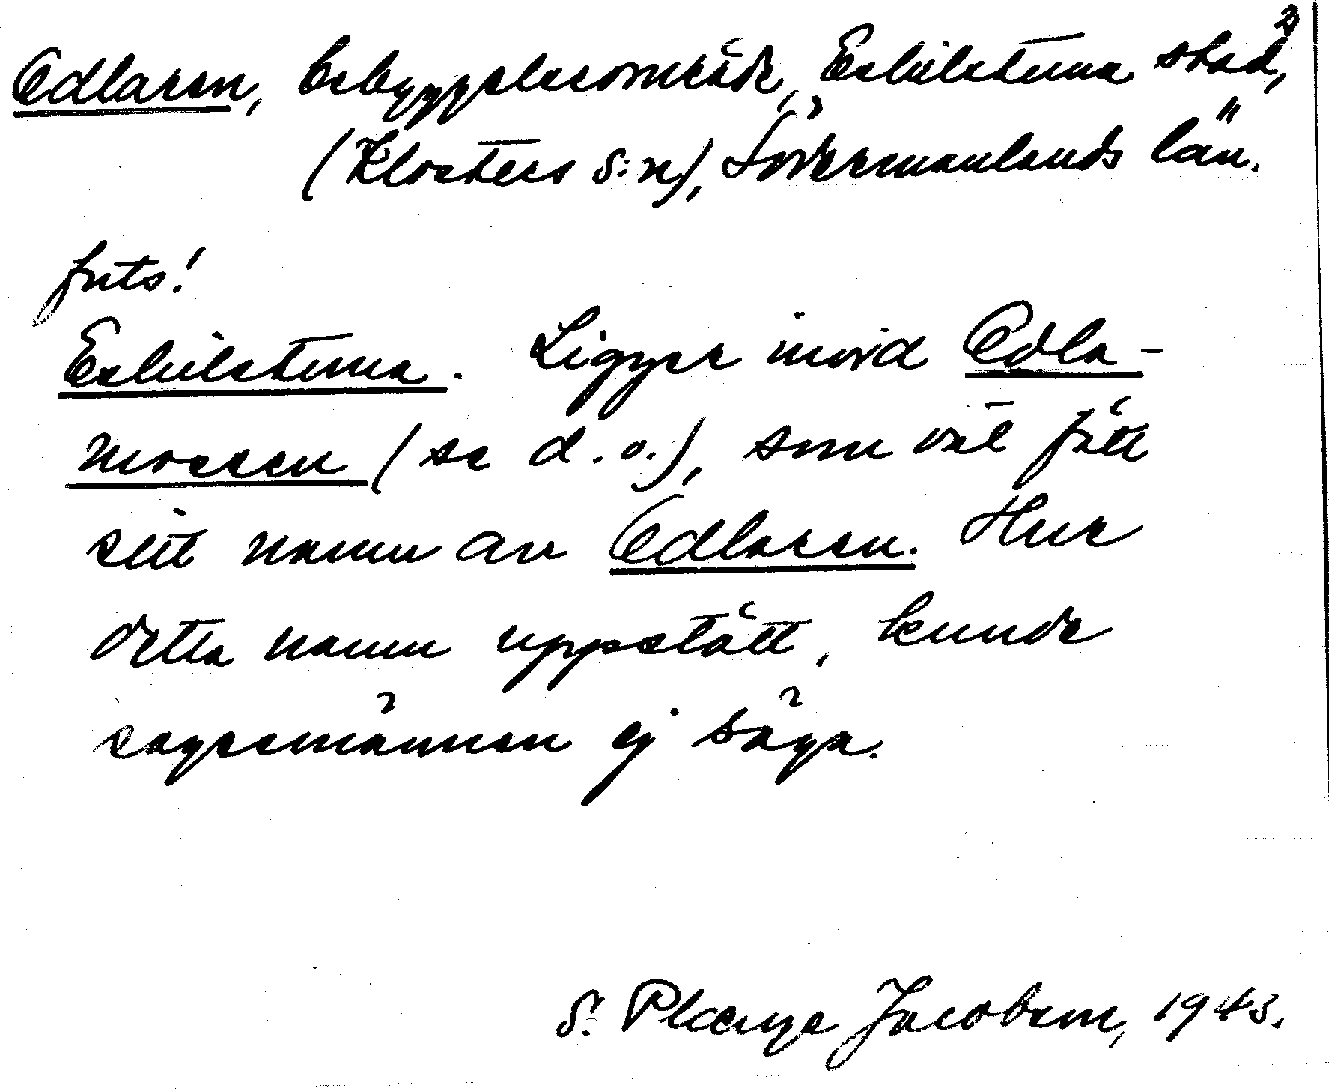 2)
Edlaren, bebyggelseområde, Eskilstuna stad,
(Klosters s:n), Södermanlands län.
forts!
Eskilstuna. Ligger invid Edla-
mossen (se d.o.), som väl fått
sitt namn av Edlaren. Hur
detta namn uppstått, kunde
sagesmännen ej säga.
S. Plænge Jacobson, 1943.